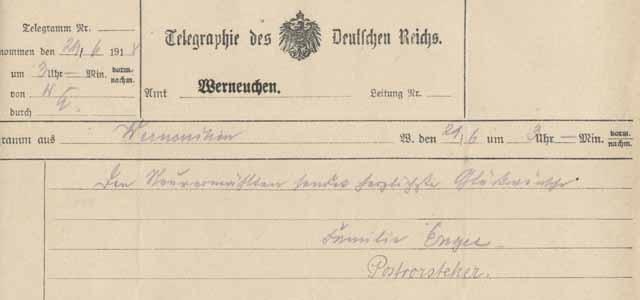 Telegramm Nr.
nommen den 21/6 1918
um 3 Uhr — Min. vorm. nachm.
von
durch
Telegraphie des Deutschen Reichs.
Amt Werneuchen. Leitung Nr.
gramm aus W. den 21/6 um 3 Uhr — Min. vorm. nachm.
Den Neuvermählten sendet herzlichste Glückwünsche
Familie
Postvorsteher.